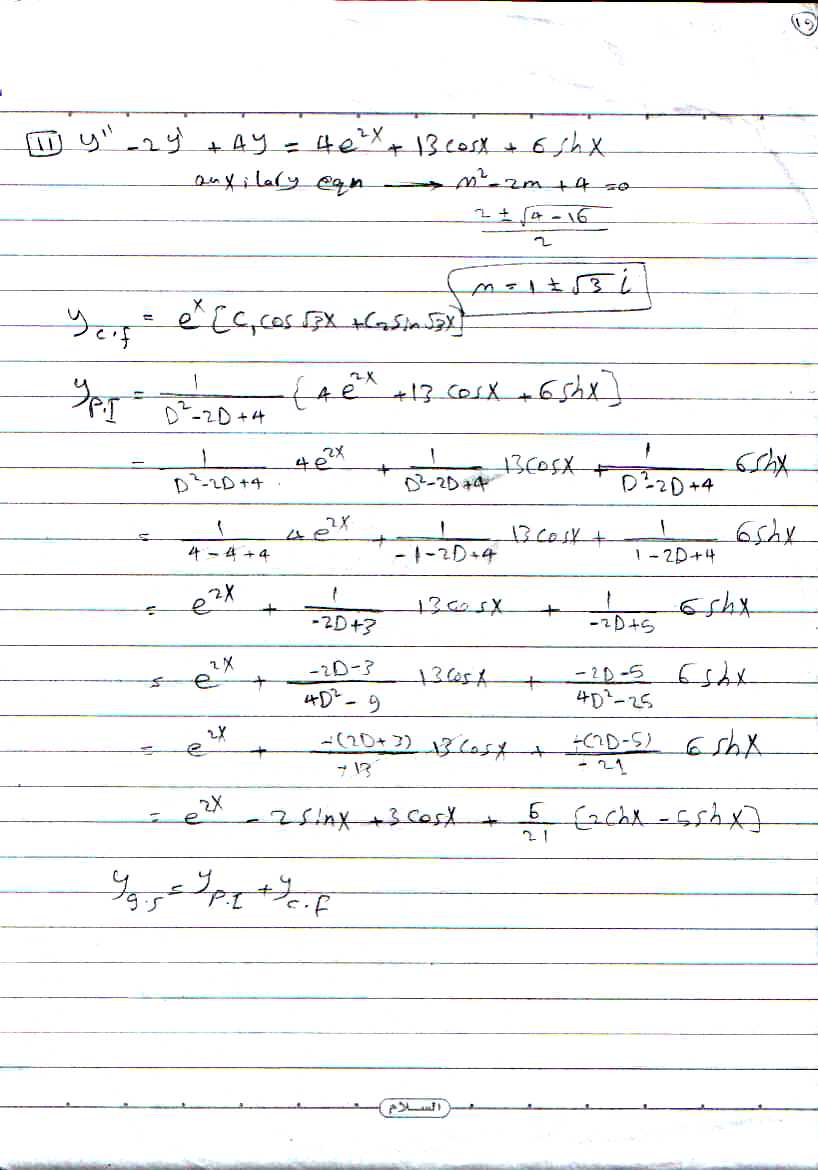 ١٥
11 y" - 2y' + 4y = 4e^{2x} + 13 cosx + 6 shx
auxilary eqn → m² - 2m + 4 = 0
(2 ± √(4 - 16)) / 2
m = 1 ± √3 i
y_{c.f} = e^x [C₁ cos √3x + C₂ sin √3x]
y_{P.I} = 1/(D² - 2D + 4) {4e^{2x} + 13 cosx + 6 shx]
= 1/(D² - 2D + 4) 4e^{2x} + 1/(D² - 2D + 4) 13 cosx + 1/(D² - 2D + 4) 6 shx
= 1/(4 - 4 + 4) 4e^{2x} + 1/(-1 - 2D + 4) 13 cosx + 1/(1 - 2D + 4) 6 shx
= e^{2x} + 1/(-2D + 3) 13 cosx + 1/(-2D + 5) 6 shx
= e^{2x} + (-2D - 3)/(4D² - 9) 13 cosx + (-2D - 5)/(4D² - 25) 6 shx
= e^{2x} + -(2D + 3)/-13 13 cosx + -(2D - 5)/-21 6 shx
= e^{2x} - 2 sinx + 3 cosx + 6/21 [2chx - 5shx]
y_{g.s} = y_{P.I} + y_{c.f}
السلام